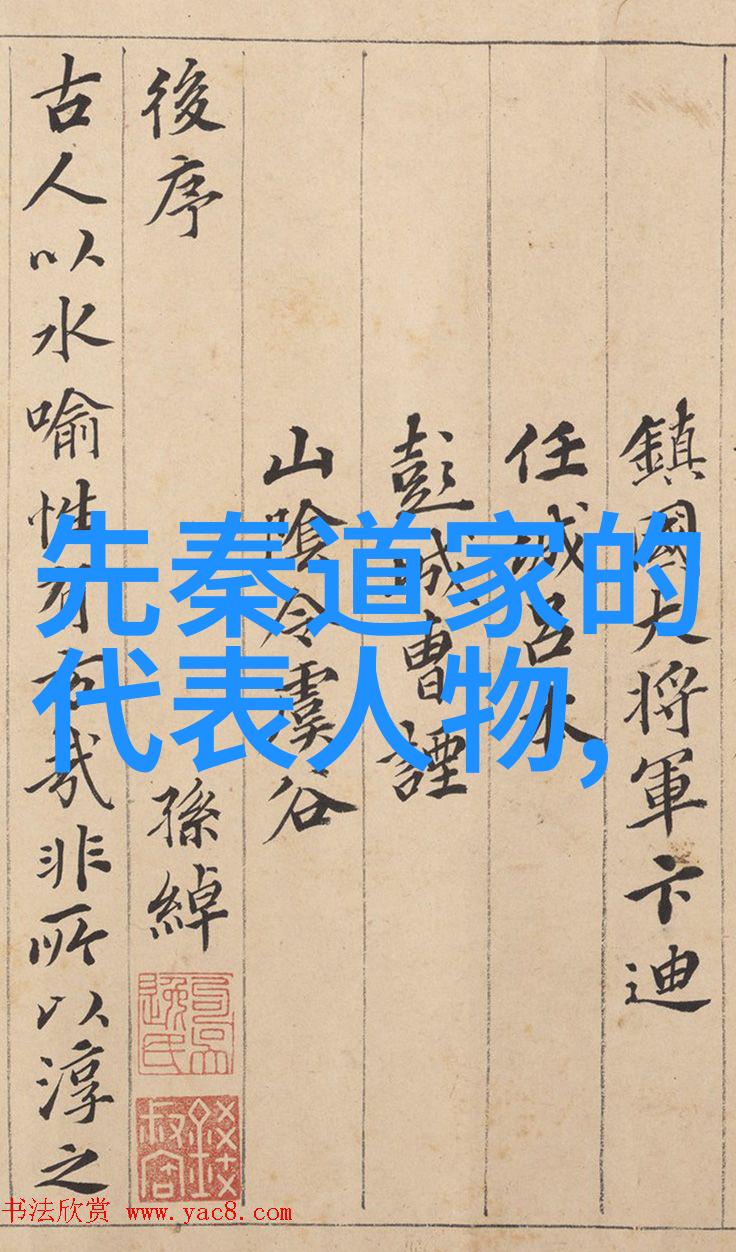 先秦道家的
代表人物,
鎮國大将軍卞迪
任城呂本
彭城曹諲
山陰令虞谷
後序 孫綽
古人以水喻性有旨哉非所以淳之
书法欣赏 www.yac8.com